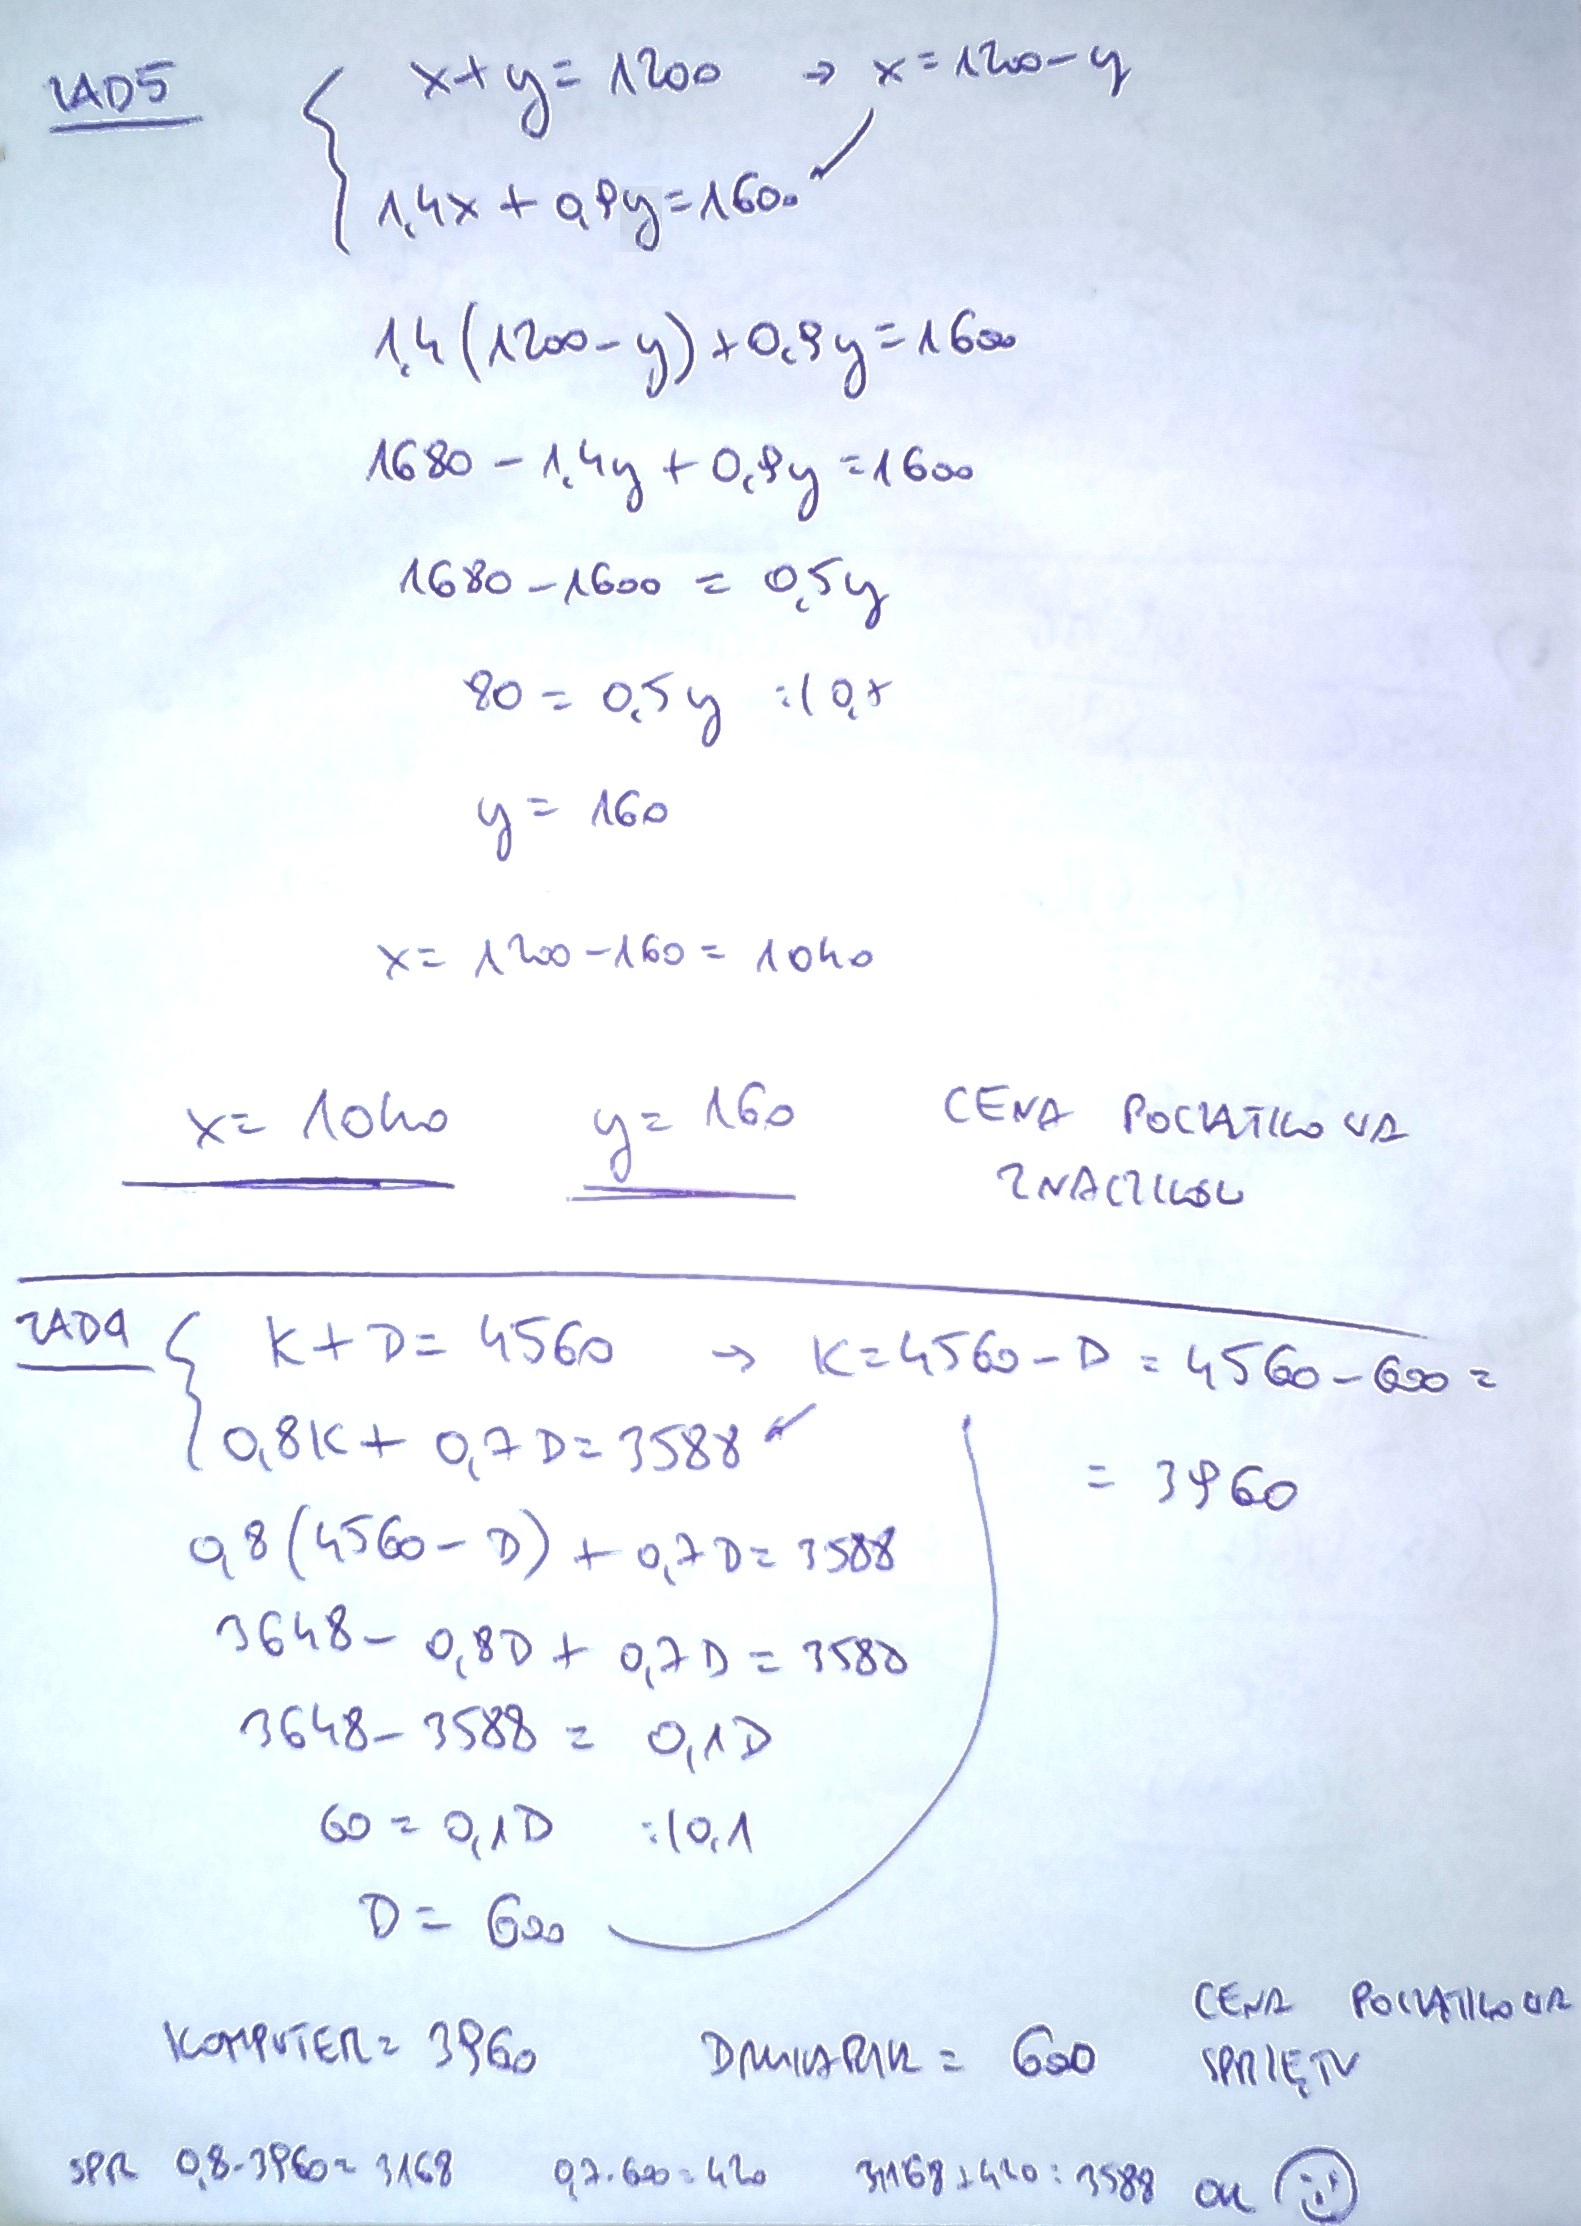 ZAD5
x+y=1200 → x=1200-y
1,4x+0,9y=1600
1,4(1200-y)+0,9y=1600
1680-1,4y+0,9y=1600
1680-1600=0,5y
80=0,5y :/0,5
y=160
x=1200-160=1040
x=1040 y=160 CENA POCZĄTKOWA
ZNACZKÓW
ZAD9
K+D=4560 → K=4560-D=4560-600=
0,8K+0,7D=3588 =3960
0,8(4560-D)+0,7D=3588
3648-0,8D+0,7D=3588
3648-3588=0,1D
60=0,1D :/0,1
D=600
CENA POCZĄTKOWA
KOMPUTER=3960 DRUKARKA=600 SPRZĘTU
SPR 0,8·3960=3168 0,7·600=420 3168+420=3588 OK